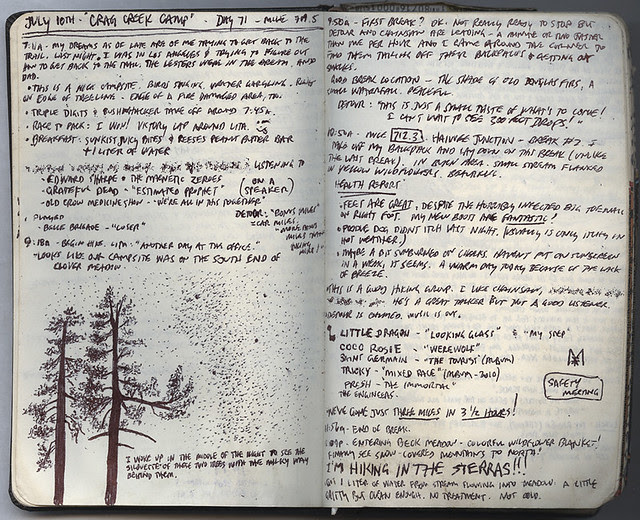 JULY 10TH - "CRAG CREEK CAMP" - DAY 71 - MILE 709.5
7:11A - MY DREAMS AS OF LATE ARE OF ME TRYING TO GET BACK TO THE
TRAIL. LAST NIGHT, I WAS IN LOS ANGELES & TRYING TO FIGURE OUT
HOW TO GET BACK TO THE TRAIL. THE LESTERS WERE IN THE DREAM. AND
DAD.
• THIS IS A NICE CAMPSITE. BIRDS SINGING. WATER GARGLING. RIGHT
ON EDGE OF TREELINE - EDGE OF A FIRE DAMAGED AREA, TOO.
• TRIPLE DIGITS & BUSHWHACKER TAKE OFF AROUND 7:45A.
• RACE TO PACK: I WIN! VICTORY LAP AROUND
• BREAKFAST: SUNKIST JUICY BITES & REESES PEANUT BUTTER BAR
+ 1 LITER OF WATER
LISTENING TO
- EDWARD SHARPE & THE MAGNETIC ZEROES
- GRATEFUL DEAD - "ESTIMATED PROPHET" (ON A SPEAKER)
- OLD CROW MEDICINE SHOW - "WE'RE ALL IN THIS TOGETHER"
I PLAYED
- BELLE BRIGADE - "LOSER"
DETOUR: "BONUS MILES"
9:18A - BEGIN HIKE. "ANOTHER DAY AT THE OFFICE."
"LOOKS LIKE OUR CAMPSITE WAS ON THE SOUTH END OF
CLOVER MEADOW.
I WOKE UP IN THE MIDDLE OF THE NIGHT TO SEE THE
SILHOUETTE OF THESE TWO TREES WITH THE MILKY WAY
BEHIND THEM.
9:50A - FIRST BREAK? OK. NOT REALLY READY TO STOP BUT
DETOUR AND CHAINSAW ARE LEADING - A MINUTE OR TWO FASTER
THAN ME PER HOUR AND I CAME AROUND THE CORNER TO
FIND THEM TAKING OFF THEIR BACKPACKS & GETTING OUT
SNACKS.
GOOD BREAK LOCATION - THE SHADE OF OLD DOUGLAS FIRS, A
SMALL WATERFALL. PEACEFUL.
DETOUR: "THIS IS JUST A SMALL TASTE OF WHAT'S TO COME!
I CAN'T WAIT TO SEE 300 FOOT DROPS!"
10:50A - MILE 712.3 - HAIWEE JUNCTION - BREAK #2. I
TAKE OFF MY BACKPACK AND LAY DOWN ON THIS BREAK (UNLIKE
THE LAST BREAK). IN BURN AREA. SMALL STREAM FLANKED
IN YELLOW WILDFLOWERS. BEAUTIFUL.
HEALTH REPORT
- FEET ARE GREAT, DESPITE THE HORRIBLY INFECTED BIG TOENAIL
ON RIGHT FOOT. MY NEW BOOTS ARE FANTASTIC!
• POODLE DOG DIDN'T ITCH LAST NIGHT. (USUALLY IS ONLY ITCHY IN
HOT WEATHER)
• MAYBE A BIT SUNBURNED ON CHEEKS. HAVEN'T PUT ON SUNSCREEN
IN A WEEK, IT SEEMS. A WARM DAY TODAY BECAUSE OF THE LACK
OF BREEZE.
THIS IS A GOOD HIKING GROUP. I LIKE CHAINSAW,
HE'S A GREAT TALKER BUT NOT A GOOD LISTENER.
MUSIC IS ON.
LITTLE DRAGON - "LOOKING GLASS" & "MY STEP"
COCO ROSIE - "WEREWOLF"
SAINT GERMAIN - "THE TOURIST" (ALBUM)
TRICKY - "MIXED RACE" (ALBUM - 2010)
FRESH - THE IMMORTAL
THE ENGINEERS.
SAFETY
MEETING
WE'VE GONE JUST THREE MILES IN 3 1/2 HOURS!
11:54A - END OF BREAK.
ENTERING BECK MEADOW - COLORFUL WILDFLOWER BLANKET!
FINALLY SEE SNOW-COVERED MOUNTAINS TO NORTH!
I'M HIKING IN THE SIERRAS!!!
GOT 1 LITER OF WATER FROM STREAM FLOWING INTO MEADOW. A LITTLE
GRITTY BUT CLEAN ENOUGH. NO TREATMENT. NOT COLD.